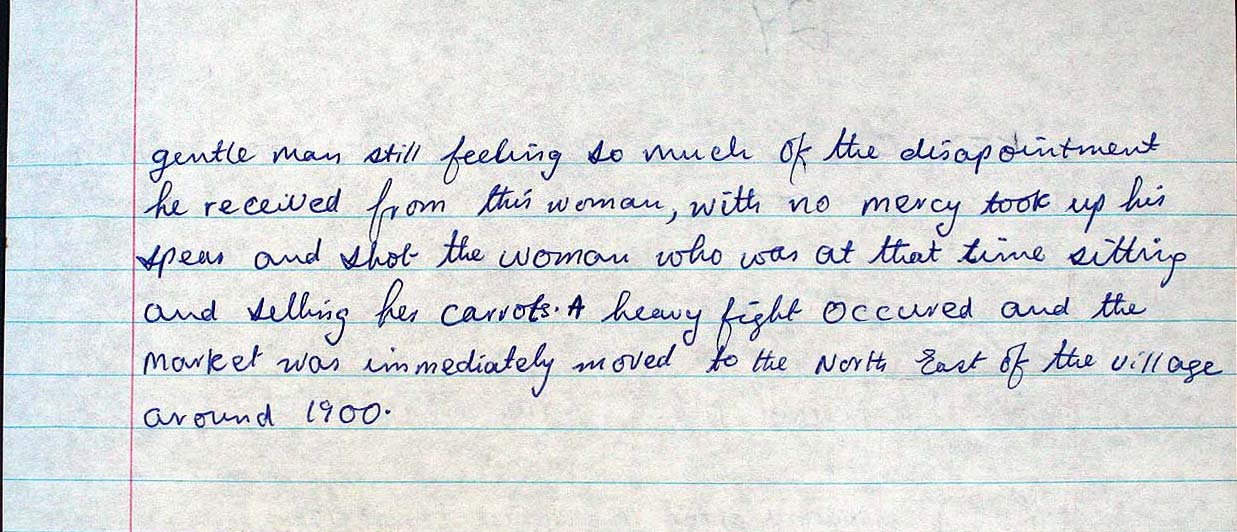 gentle man still feeling so much of the disapointment
he received from this woman, with no mercy took up his
spear and shot the woman who was at that time sitting
and selling her carrots. A heavy fight occured and the
market was immediately moved to the North East of the village
around 1900.